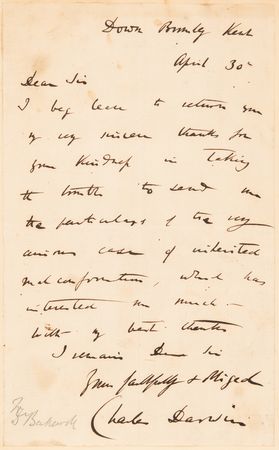 Down Bromley Kent
April 30th
Dear Sir
I beg leave to return you
my very sincere thanks for
your kindness in taking
the trouble to send me
the particulars of the very
curious case of inherited
malconformation, which has
interested me much —
With my best thanks
I remain Dear Sir
Yours faithfully & obliged
Charles Darwin